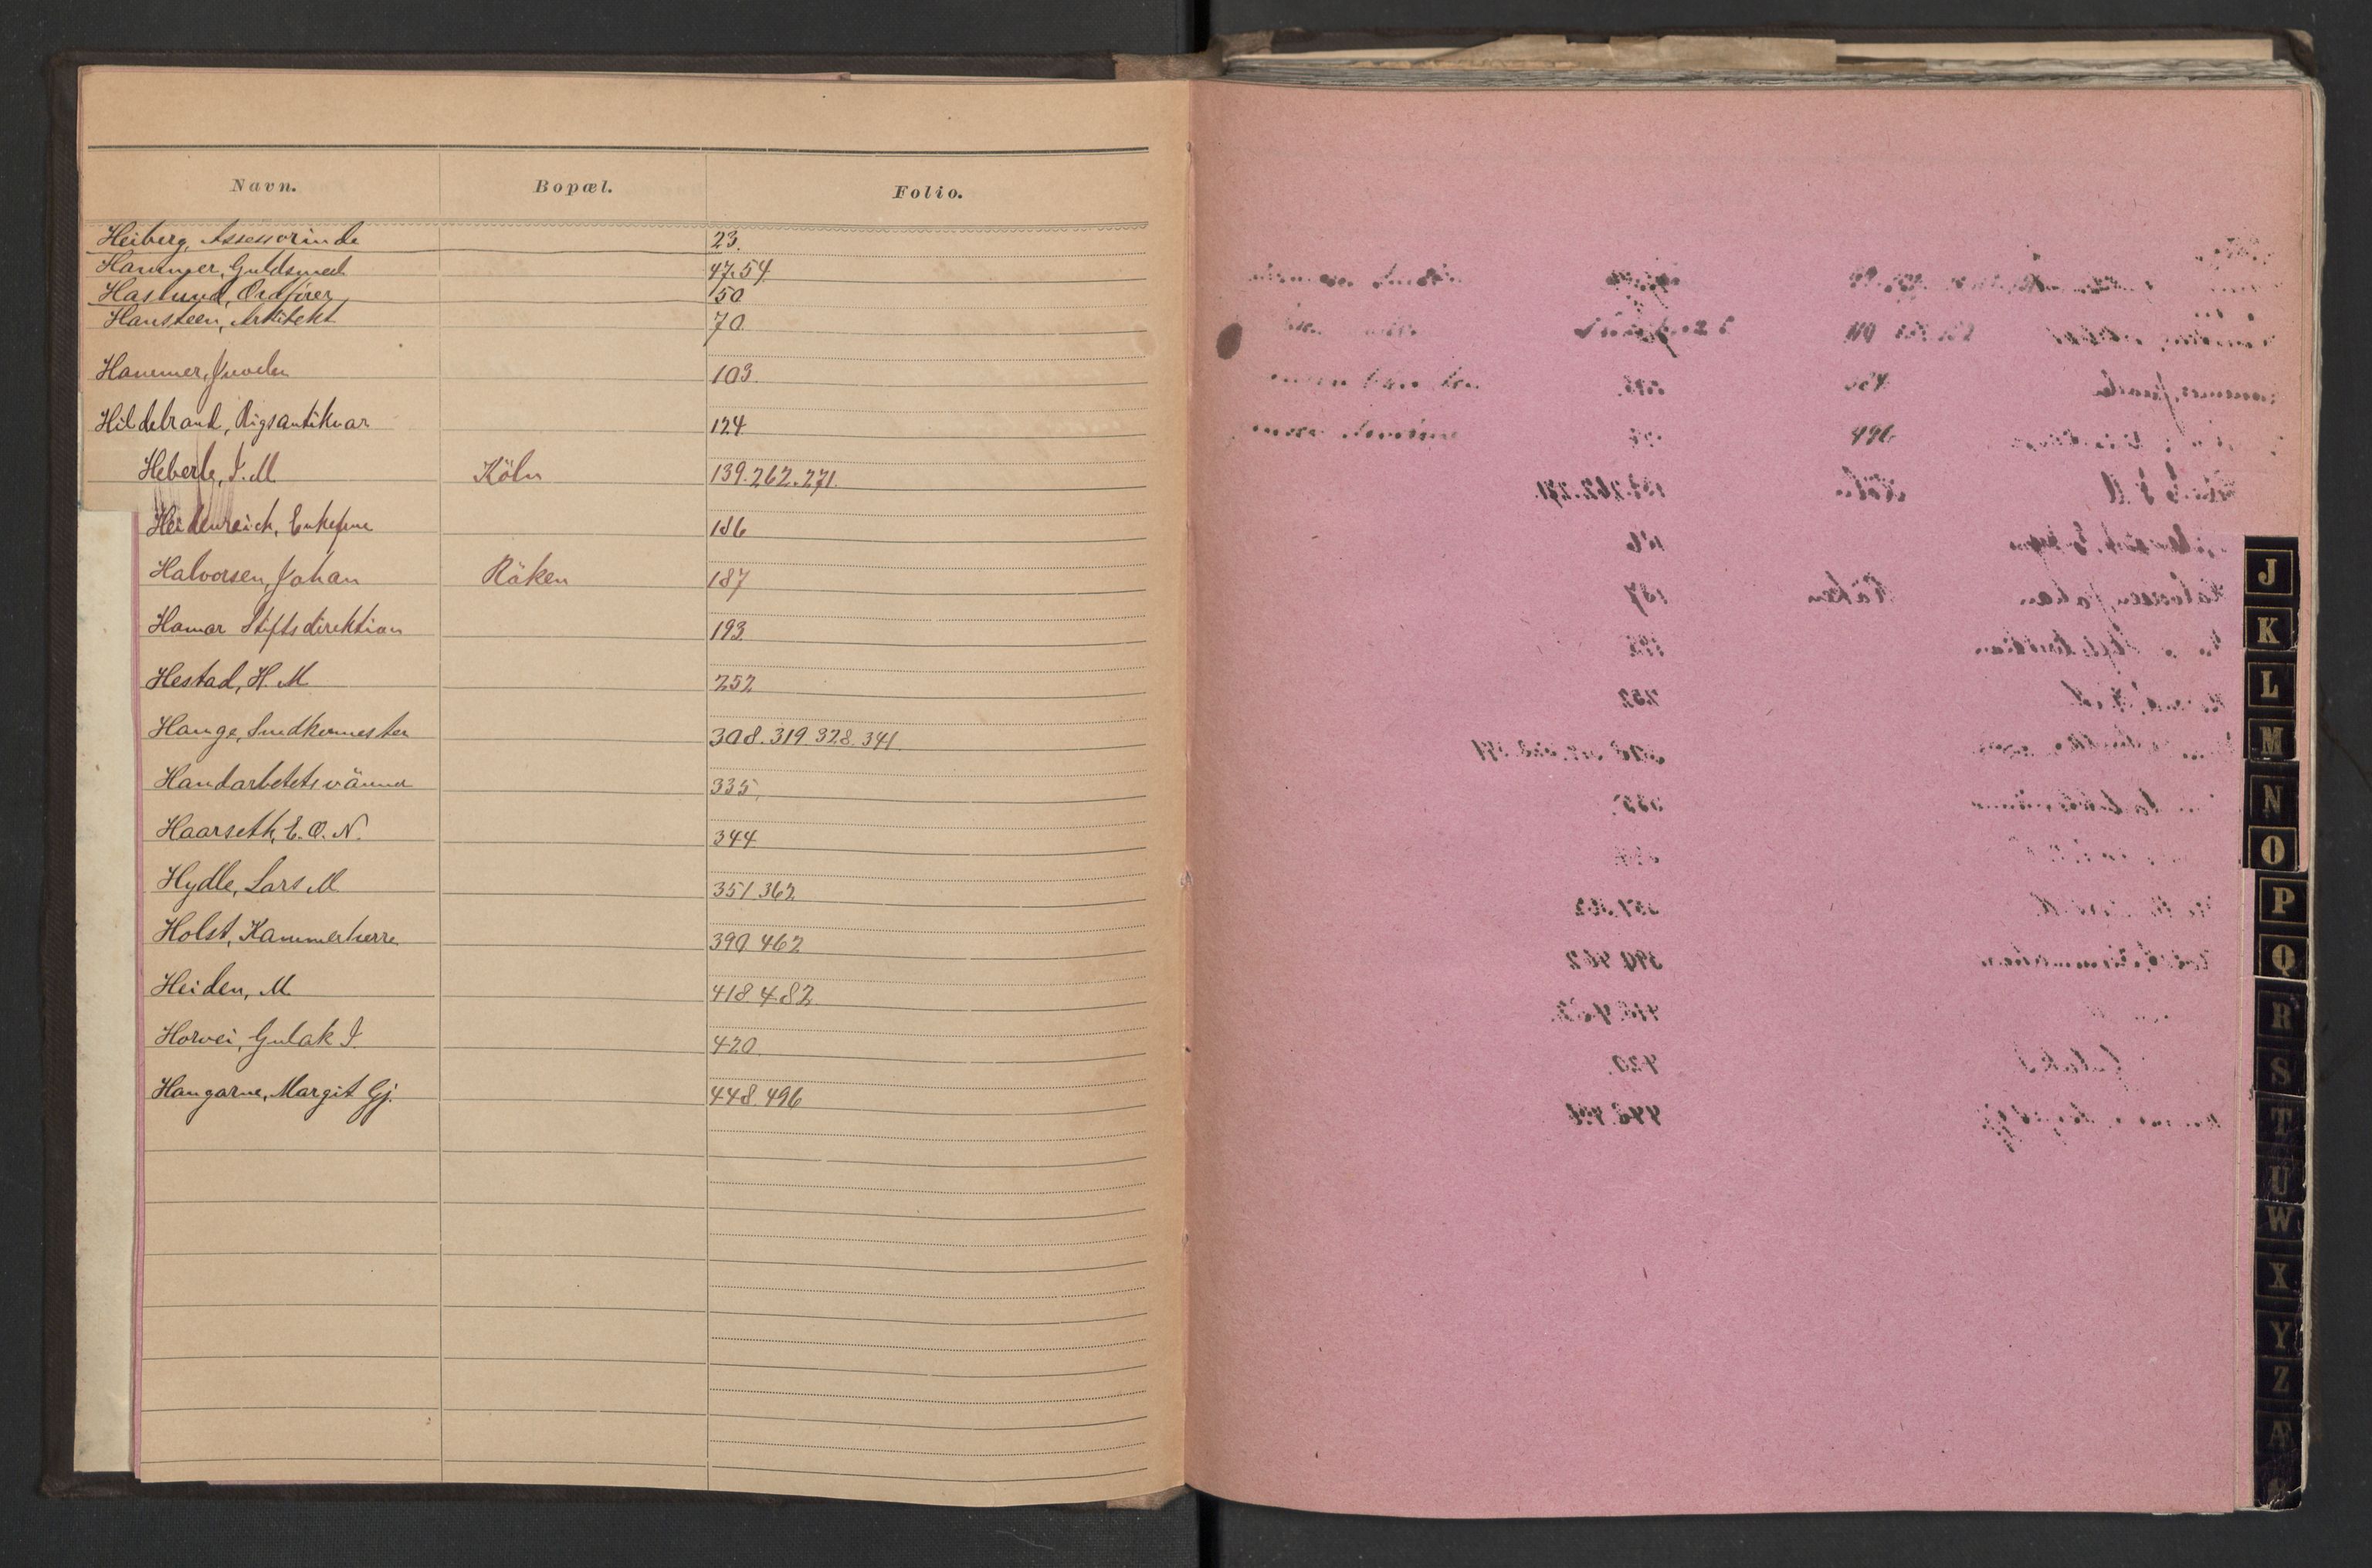 Navn. Bopæl. Folio.
Heiberg, Assessorinde 23.
Hammer, Guldsmed 47.54
Haslund, Ordfører 50
Hansteen, Arkitekt 70
Hammer, Juveler 103.
Hildebrand, Rigsantikvar 124
Heberle, J. M. Köln 139.262.271.
Heidenreich, Enkefrue 186
Halvorsen, Johan Röken 187
Hamar Stiftsdirektion 193
Hestad, H. M. 252
Hauge, 308.319.328.341.
Handarbetets vänner 335.
Haarseth, E. O. N. 344
Hydle, Lars M. 351.362
Holst, Kammerherre 390.462
Heiden, M. 418.482
Horvei, Gulak J. 420.
Haugarne, Margit Gj. 448.496
J
K
L
M
N
O
P
Q
R
S
T
U
W
X
Y
Z
Æ